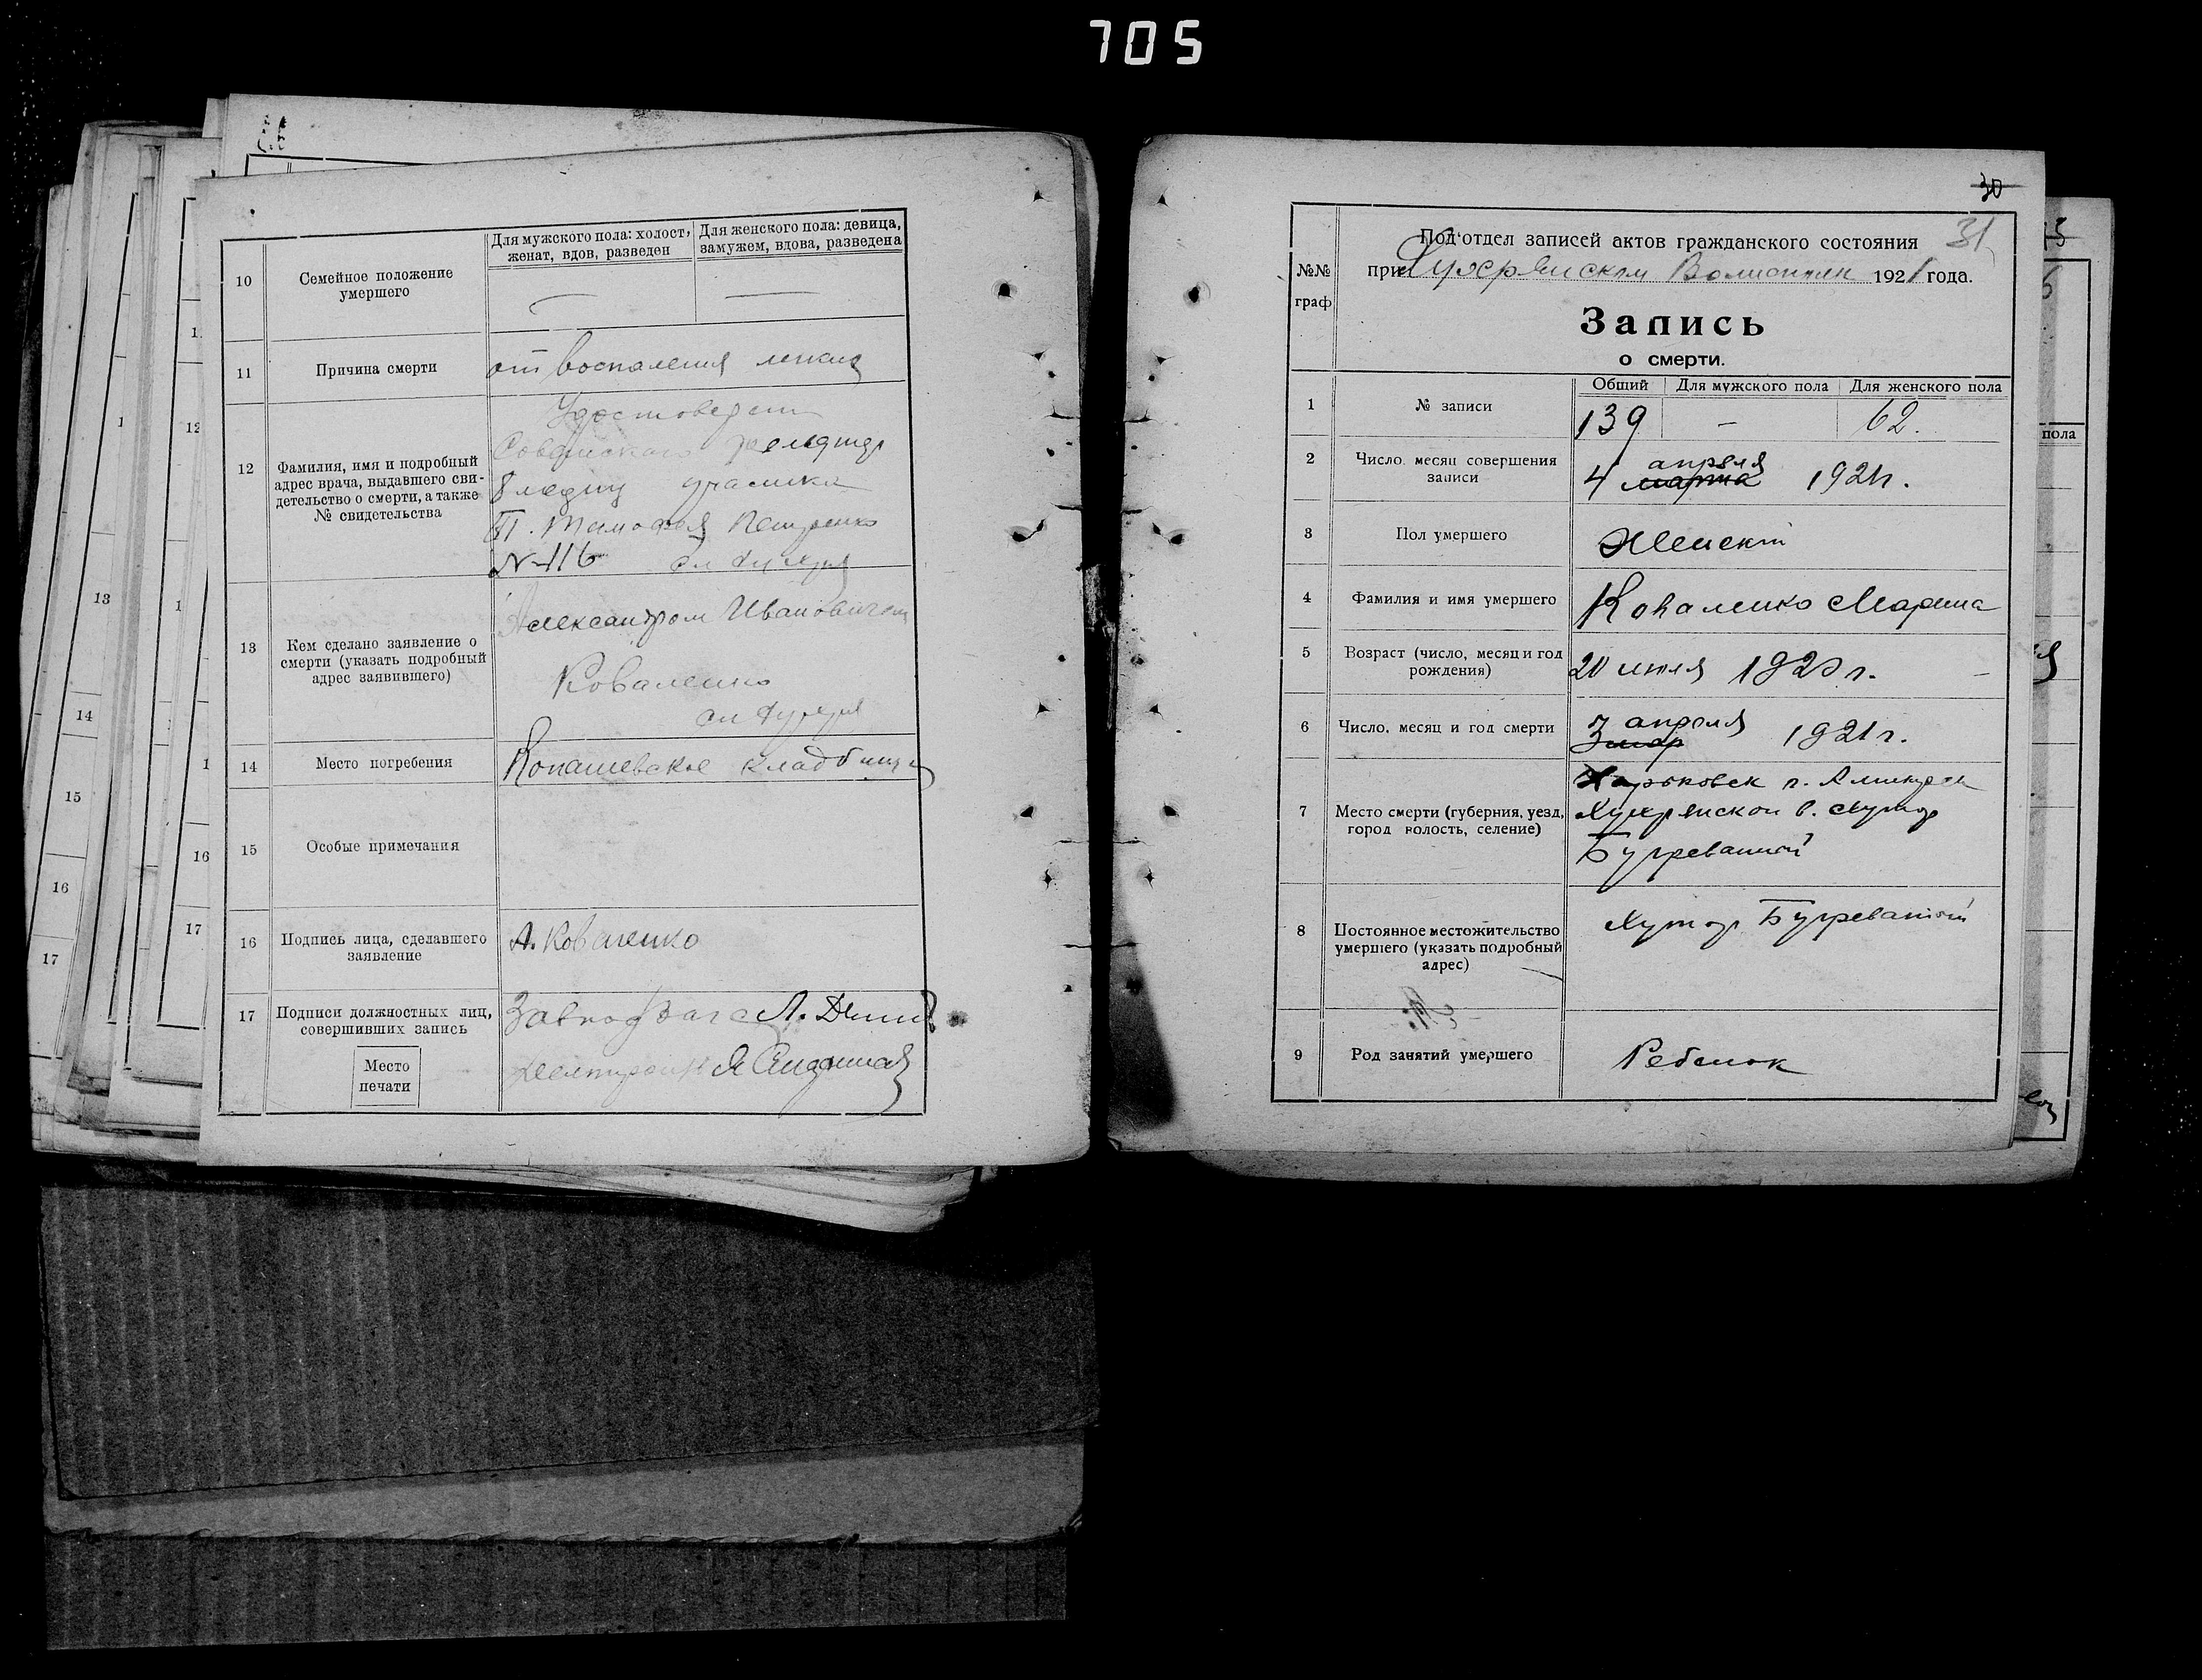 705
10
Семейное положение
умершего
Для мужского пола: холост,
женат, вдов, разведен
Для женского пола: девица,
замужем, вдова, разведена
11
Причина смерти
от воспаления легких
12
Фамилия, имя и подробный
адрес врача, выдавшего сви-
детельство о смерти, а также
№ свидетельства
участка
Петренко
№ 116
13
Кем сделано заявление о
смерти (указать подробный
адрес заявившего)
Александром Ивановичем
Коваленко
14
Место погребения
кладбище
15
Особые примечания
16
Подпись лица, сделавшего
заявление
А. Коваленко
17
Подписи должностных лиц,
совершивших запись
Место
печати
30
31
№№
граф
Подотдел записей актов гражданского состояния
при 1921 года.
Запись
о смерти.
1
№ записи
Общий
Для мужского пола
Для женского пола
139
–
62.
2
Число, месяц совершения
записи
апреля
4 марта 1921 г.
3
Пол умершего
Женский
4
Фамилия и имя умершего
Коваленко Марина
5
Возраст (число, месяц и год
рождения)
20 июля 1920 г.
6
Число, месяц и год смерти
3 апреля
3 мар 1921 г.
7
Место смерти (губерния, уезд,
город волость, селение)
Харьковск г.
в. хутор
Бугреватый
8
Постоянное местожительство
умершего (указать подробный
адрес)
Хутор Бугреватый
9
Род занятий умершего
Ребенок
12
13
14
15
16
17
16
17
пола